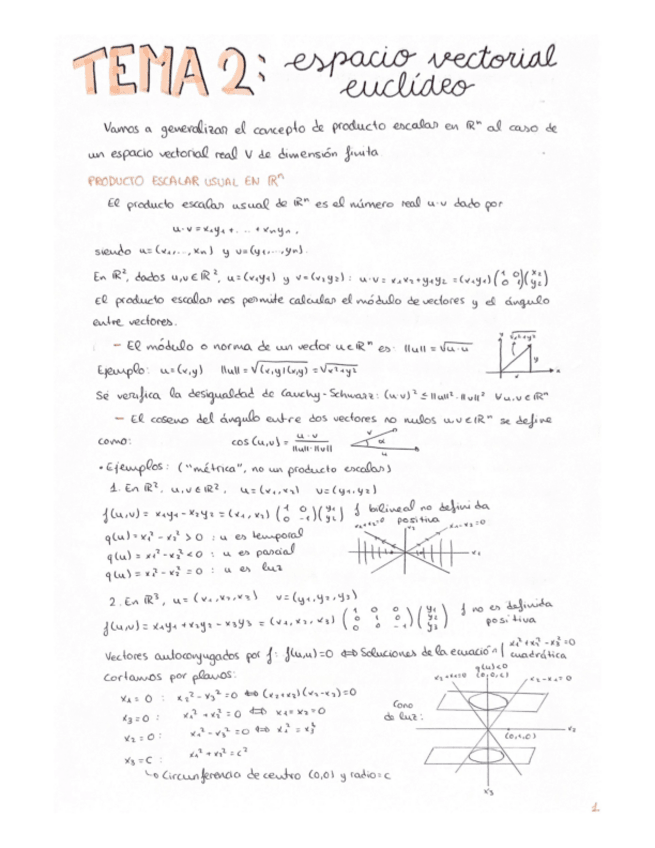 TEMA 2: espacio vectorial
euclídeo
Vamos a generalizar el concepto de producto escalar en ℝⁿ al caso de
un espacio vectorial real V de dimensión finita
PRODUCTO ESCALAR USUAL EN ℝⁿ
El producto escalar usual de ℝⁿ es el número real u·v dado por
u·v = x₁y₁ + ... + xₙyₙ,
siendo u=(x₁,...,xₙ) y v=(y₁,...,yₙ).
En ℝ², dados u,v∈ℝ², u=(x₁y₁) y v=(x₂y₂): u·v = x₁x₂+y₁y₂ = (x₁y₁) (1 0 / 0 1) (x₂ / y₂)
El producto escalar nos permite calcular el módulo de vectores y el ángulo
entre vectores.
- El módulo o norma de un vector u∈ℝⁿ es: ||u|| = √u·u
√x²+y²
y
x
Ejemplo: u=(x,y) ||u|| = √(x,y)(x,y) = √x²+y²
Se verifica la desigualdad de Cauchy-Schwarz: (u·v)² ≤ ||u||²·||v||² ∀u,v∈ℝⁿ
- El coseno del ángulo entre dos vectores no nulos u,v∈ℝⁿ se define
como: cos(u,v) = u·v / ||u||·||v||
v α u
• Ejemplos: ("métrica", no un producto escalar)
1. En ℝ², u,v∈ℝ², u=(x₁,x₂) v=(y₁,y₂)
f(u,v) = x₁y₁ - x₂y₂ = (x₁,x₂) (1 0 / 0 -1) (y₁ / y₂) f bilineal no definida
positiva
x₁+x₂=0 x₂ x₁-x₂=0
x₁
q(u) = x₁² - x₂² > 0 : u es temporal
q(u) = x₁² - x₂² < 0 : u es parcial
q(u) = x₁² - x₂² = 0 : u es luz
2. En ℝ³, u=(x₁,x₂,x₃) v=(y₁,y₂,y₃)
f(u,v) = x₁y₁ + x₂y₂ - x₃y₃ = (x₁,x₂,x₃) (1 0 0 / 0 1 0 / 0 0 -1) (y₁ / y₂ / y₃) f no es definida
positiva
Vectores autoconjugados por f: f(u,u)=0 ⇔ Soluciones de la ecuación { x₁²+x₂²-x₃²=0
cuadrática
Cortamos por planos:
x₁ = 0 : x₂² - x₃² = 0 ⇔ (x₂+x₃)(x₂-x₃)=0
x₃ = 0 : x₁² + x₂² = 0 ⇔ x₁=x₂=0
x₂ = 0 : x₁² - x₃² = 0 ⇔ x₁² = x₃²
x₃ = C : x₁² + x₂² = c²
↳ Circunferencia de centro (0,0) y radio=c
Cono
de luz:
q(u)<0
(0,0,c)
x₂
(0,1,0)
x₃
1